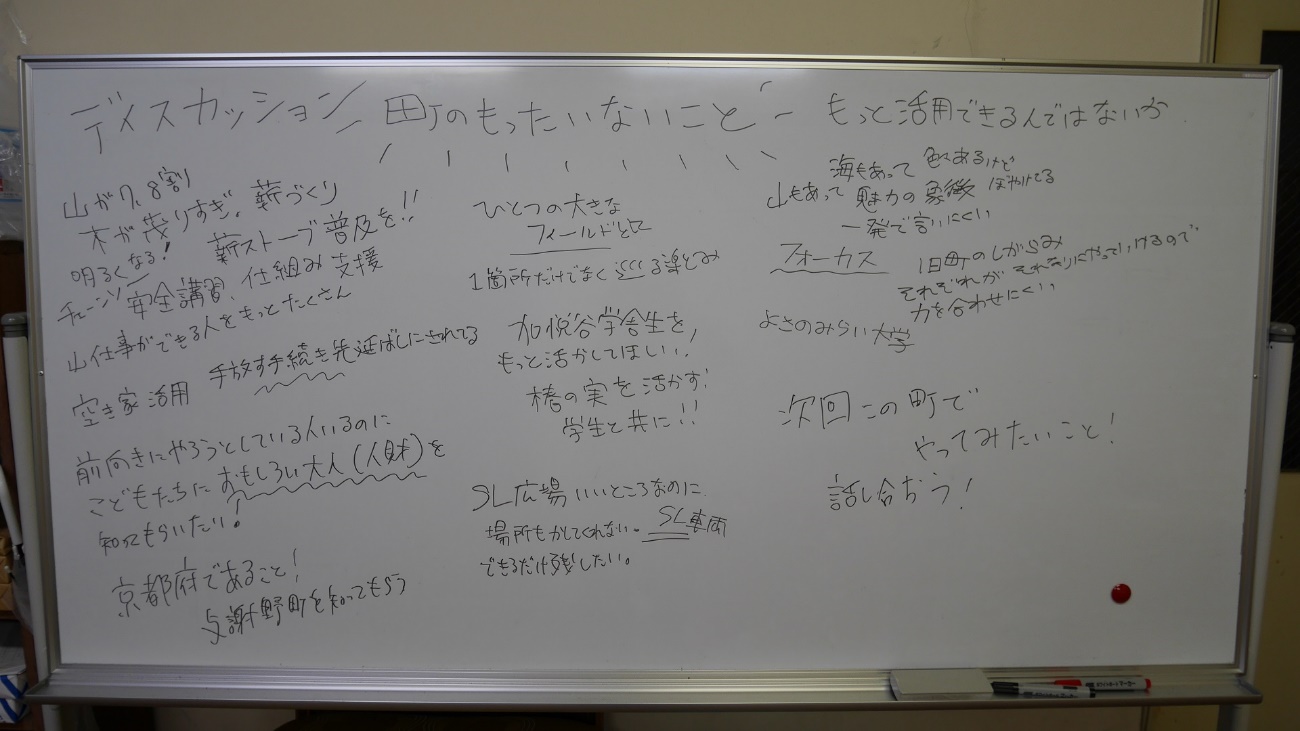 ディスカッション 町のもったいないこと もっと活用できるんではないか
山が7、8割
木が茂りすぎ。薪づくり
明るくなる! 薪ストーブ普及を!!
チェーンソー安全講習、仕組み支援
山仕事ができる人をもっとたくさん
空き家活用 手放す手続き先延ばしにされてる
前向きにやろうとしている人いるのに
こどもたちにおもしろい大人(人財)を
知ってもらいたい!
京都府であること!
与謝野町を知ってもらう
ひとつの大きな
フィールドとして
1箇所だけでなく めぐる楽しみ
加悦谷学舎生を、
もっと活かしてほしい!
椿の実を活かす!
学生と共に!!
SL広場いいところなのに
場所もかしてくれない。SL車両
できるだけ残したい。
海もあって 色々あるけど
山もあって 魅力の象徴 ぼやけてる
一発で言いにくい
フォーカス 旧町のしがらみ
それぞれがそれなりにやっていけるので
力を合わせにくい
よさのみらい大学
次回この町で
やってみたいこと!
話し合おう!